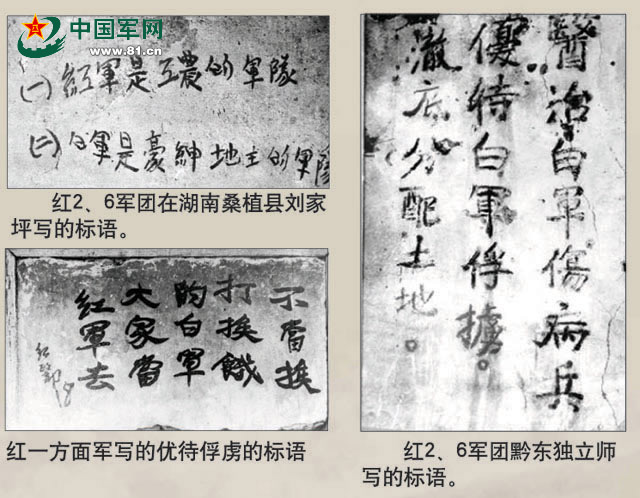 中国军网
www.81.cn
(一)红軍是工農的軍隊
(二)白軍是豪紳地主的軍隊
红2、6军团在湖南桑植县刘家
坪写的标语。
不當挨
打挨餓
的白軍
大家當
紅軍去
红一方面军写的优待俘虏的标语
醫治白軍傷病兵
優待白軍俘擄。
澈底分配土地。
红2、6军团黔东独立师
写的标语。